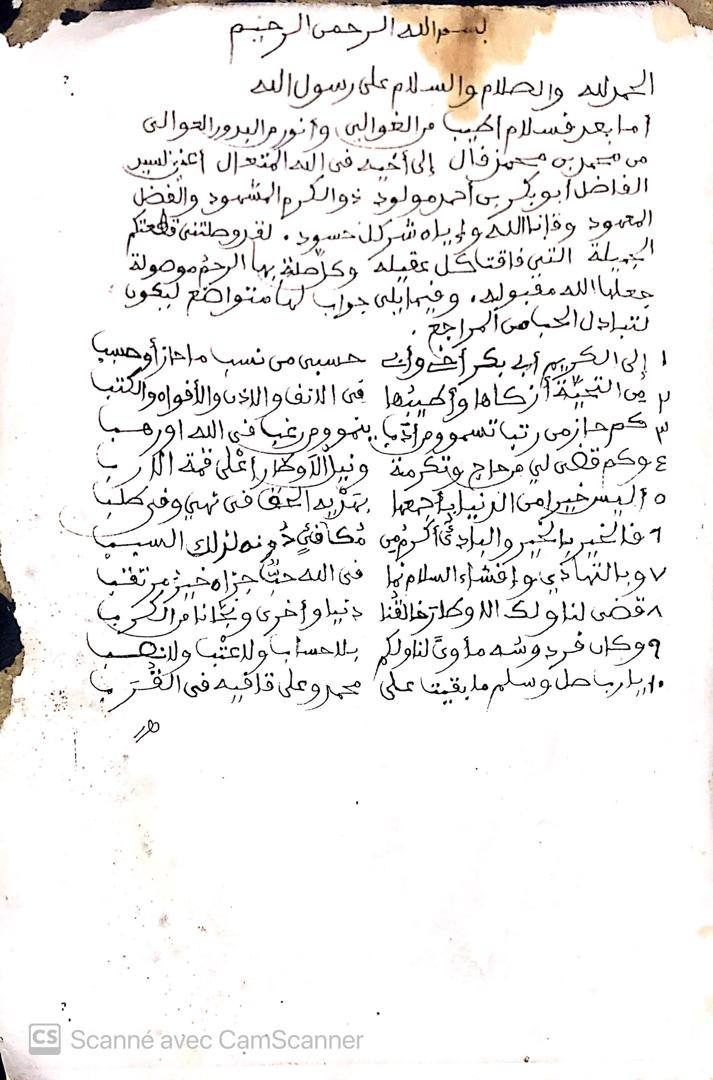 بسم الله الرحمن الرحيم
الحمد لله والصلام والسلام على رسول الله
أما بعد فسلام أطيب من الغوالي وأنور من البدور العوالى
من محمد بن محمذن فال إلى أخيه في الله المتعال أعني السيد
الفاضل أبو بكر بن أحمد مولود ذو الكرم المشهود والفضل
المعهود وقانا الله وإياه شر كل حسود. لقد وصلتني قطعتكم
الجميلة التي فاقت كل عقيله وكل صلة بها الرحم موصولة
جعلها الله مقبوله. وفيما يلي جواب لها متواضع ليكون
لتبادل الحب من المراجع.
١ إلى الكريم أبي بكر أخ وأب حسبي من نسب ما حاز أو حسب
٢ من التحية أزكاها وأطيبها في الانف والاذن والأفواه والكتب
٣ كم حاز من رتب تسمو ومن أدب ينمو ومن رغب في الله او رهب
٤ وكم قضى لي من حاج وتكرمة ونيل الأوطار أعلى قمة الأرب
٥ أليس خيرا من الدنيا بأجمعها يهديه الحق في نهي وفي طلب
٦ فالخير بالخير والبادئ أكرم من مكافئ دونه لذلك السبب
٧ وبالتهادي وإفشاء السلام نما في الله حب جزاه خير مرتقب
٨ قضى لنا ولك الاوطار خالقنا دنيا وأخرى ونجانا من الكرب
٩ وكان فردوسه مأوى لنا ولكم بلا حساب ولا عتب ولا نصب
١٠ يا رب صل وسلم ما بقيت على محمد وعلى قافيه في القرب